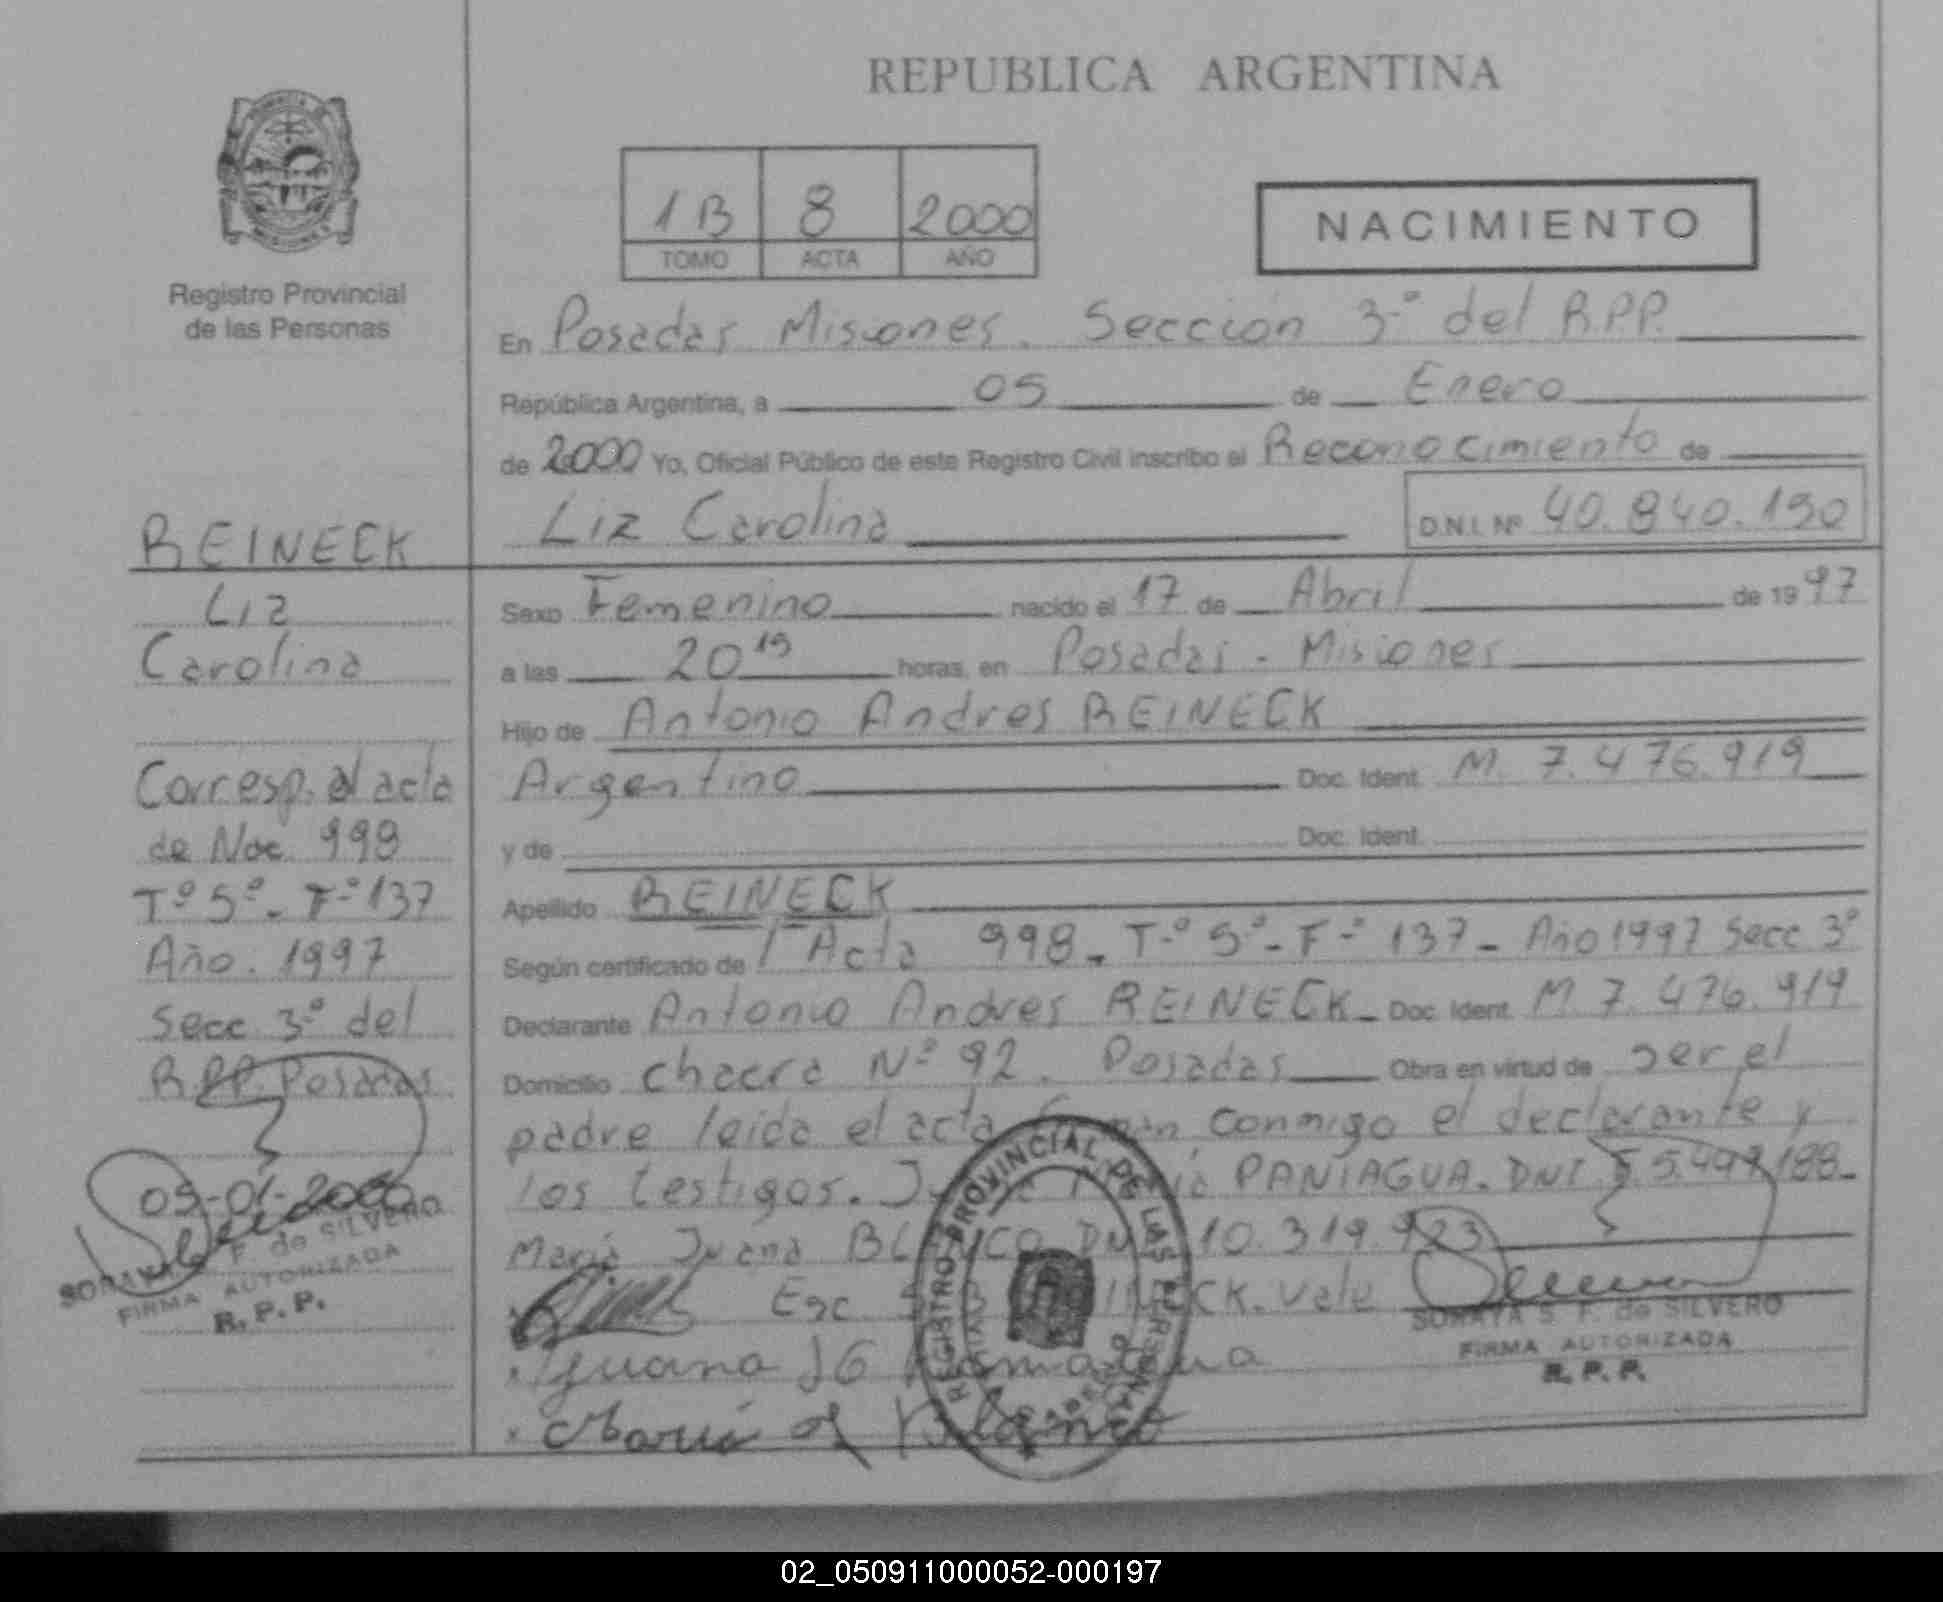 REPUBLICA ARGENTINA
1B 8 2000
TOMO ACTA AÑO
NACIMIENTO
Registro Provincial
de las Personas
En Posadas Misiones. Sección 3º del R.P.P.
República Argentina, a 05 de Enero
de 2000 Yo, Oficial Público de este Registro Civil inscribo el Reconocimiento de
Liz Carolina D.N.I. Nº 40.840.190
REINECK
Liz
Carolina
Corresp. al acta
de Nac. 998
Tº 5º - Fº 137
Año. 1997
Secc 3º del
R.P.P. Posadas
05-01-2000
F. de SILVERO
FIRMA AUTORIZADA
R. P. P.
Sexo Femenino nacido el 17 de Abril de 1997
a las 20 15 horas, en Posadas - Misiones
Hijo de Antonio Andres REINECK
Argentino Doc. Ident. M. 7.476.919
y de Doc. Ident.
Apellido REINECK
Según certificado de Acta 998 - Tº 5º - Fº 137 - Año 1997 Secc 3º
Declarante Antonio Andres REINECK - Doc. Ident. M. 7.476.919
Domicilio chacra Nº 92. Posadas Obra en virtud de ser el
padre leida el acta conmigo el declarante y
los testigos. PANIAGUA. DNI 188-
Maria Juana 10.319.923
Vale
SORAYA S. F. de SILVERO
FIRMA AUTORIZADA
R. P. P.
REGISTRO PROVINCIAL DE LAS PERSONAS
02_050911000052-000197